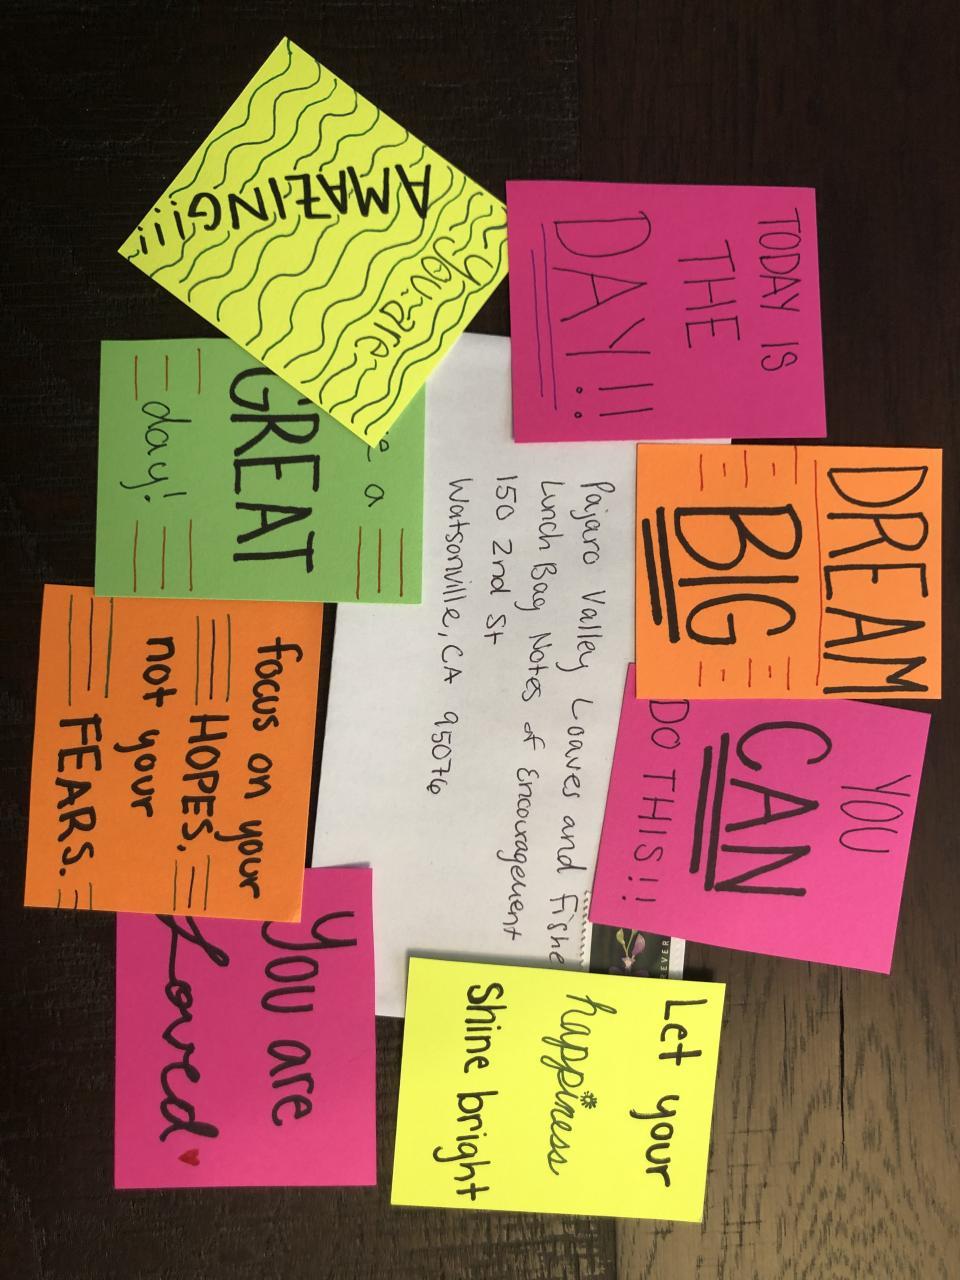 TODAY IS
THE
DAY!!
DREAM
BIG
YOU
CAN
DO THIS!!
Let your
happiness
shine bright
REVER
Pajaro Valley Loaves and Fishe
Lunch Bag Notes of Encouragement
150 2nd St
Watsonville, CA 95076
You are
AMAZING!!!
a
GREAT
day!
focus on your
HOPES.
not your
FEARS.
You are
Loved